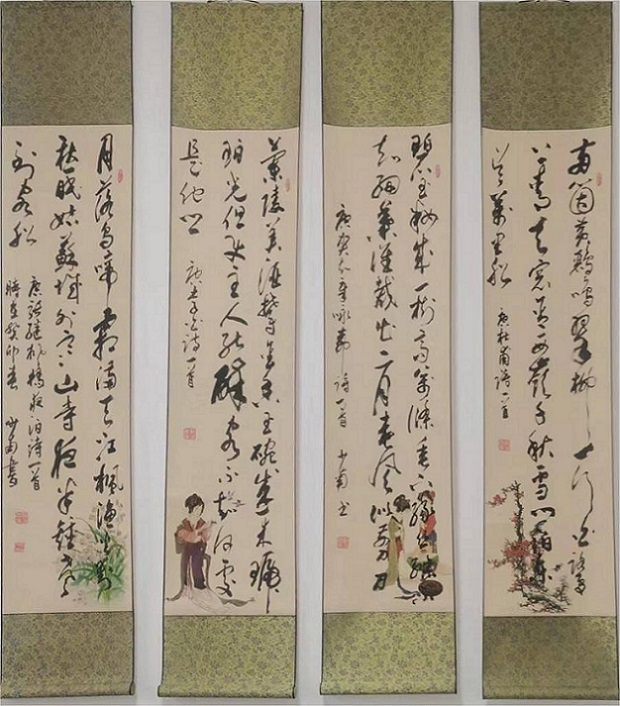 两箇黄鹂鸣翠柳一行白鹭
上青天窗含西岭千秋雪门泊东
吴萬里船
唐杜甫诗一首
碧玉妆成一树高萬條垂下绿丝绦不
知细葉谁裁出二月春风似剪刀
唐贺知章咏柳诗一首 少南书
蘭陵美酒鬱金香玉碗盛来琥
珀光但使主人能醉客不知何处
是他乡
唐李白诗一首
月落乌啼霜满天江枫渔火对
愁眠姑苏城外寒山寺夜半鐘声
到客船
唐张继枫桥夜泊诗一首
時在癸卯春 少南書